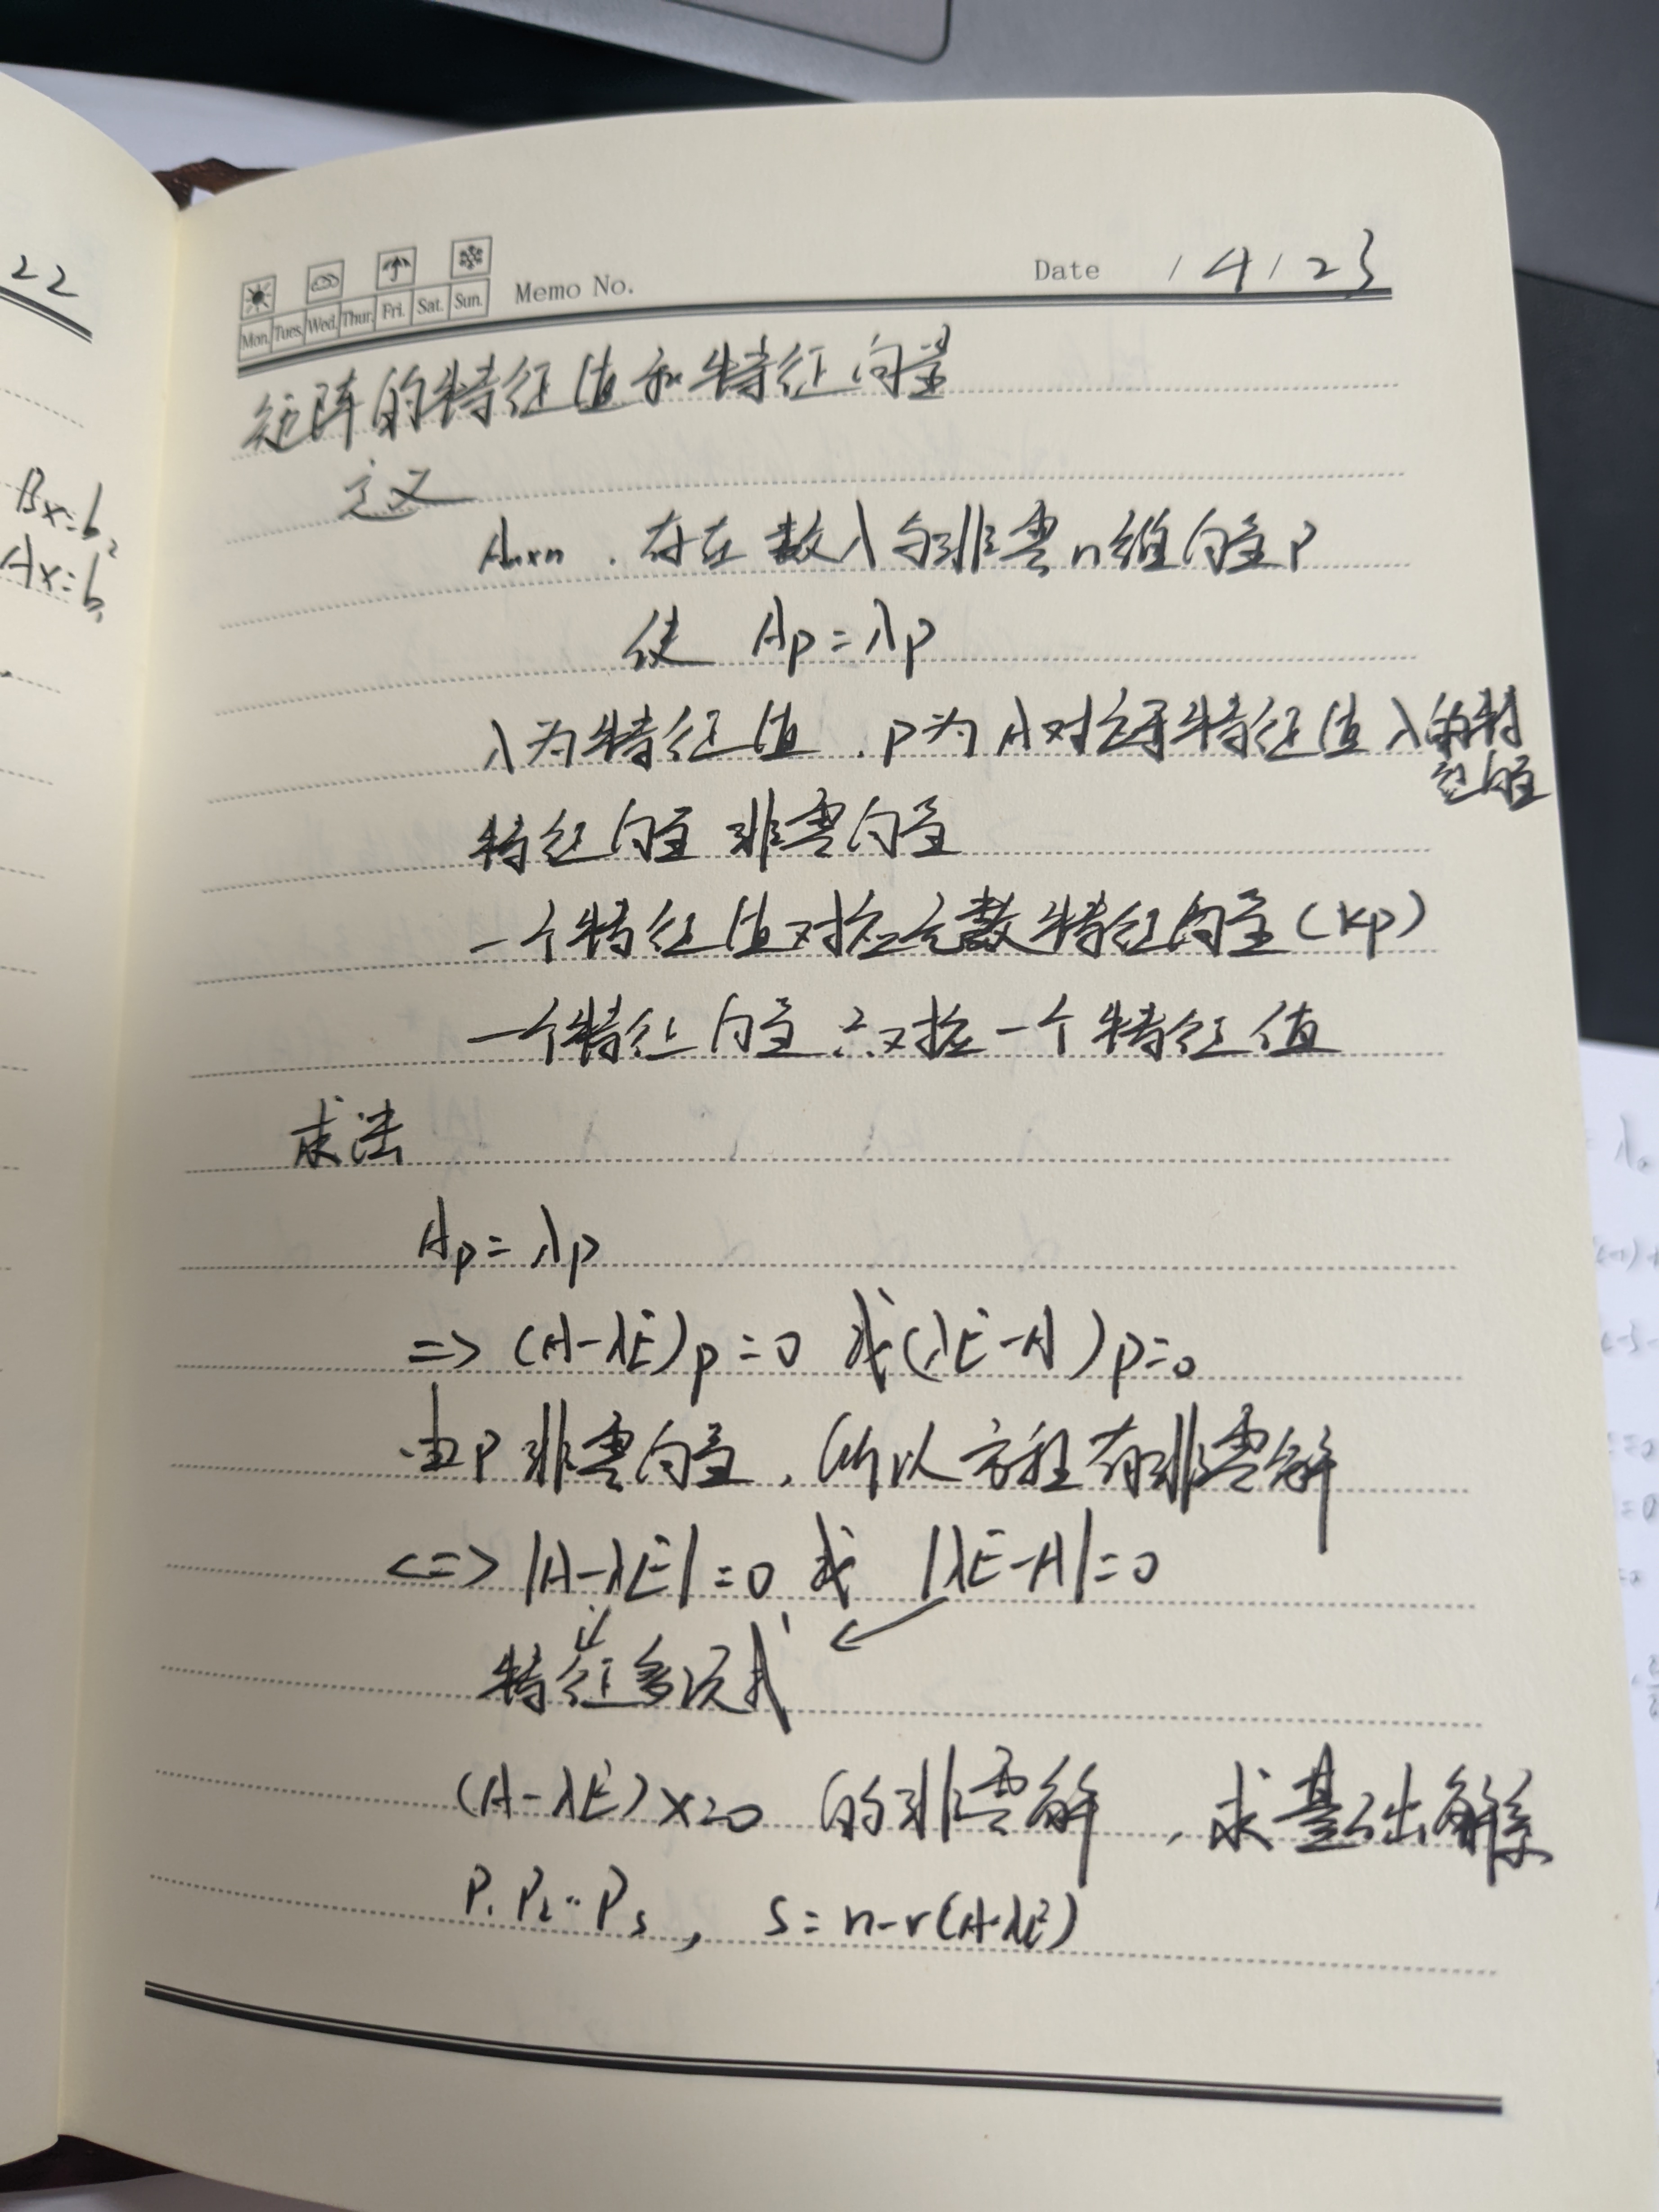 22
Bx=b₂
Ax=b₁
Mon. Tues. Wed. Thur. Fri. Sat. Sun. Memo No. Date / 4 / 23
矩阵的特征值和特征向量
定义
Aₙₓₙ . 存在数λ与非零n维向量P
使 Ap=λp
λ为特征值 , P为A对应于特征值λ的特
征向量
特征向量 非零向量
一个特征值对应无数特征向量(kp)
一个特征向量 对应一个特征值
求法
Ap=λp
=> (A-λE)p=0 或(λE-A)p=0
由P非零向量, 所以方程有非零解
<=> |A-λE|=0 或 |λE-A|=0
特征多项式
(A-λE)x=0 的非零解 , 求基础解系
P₁ P₂ ·· Pₛ , S=n-r(A-λE)